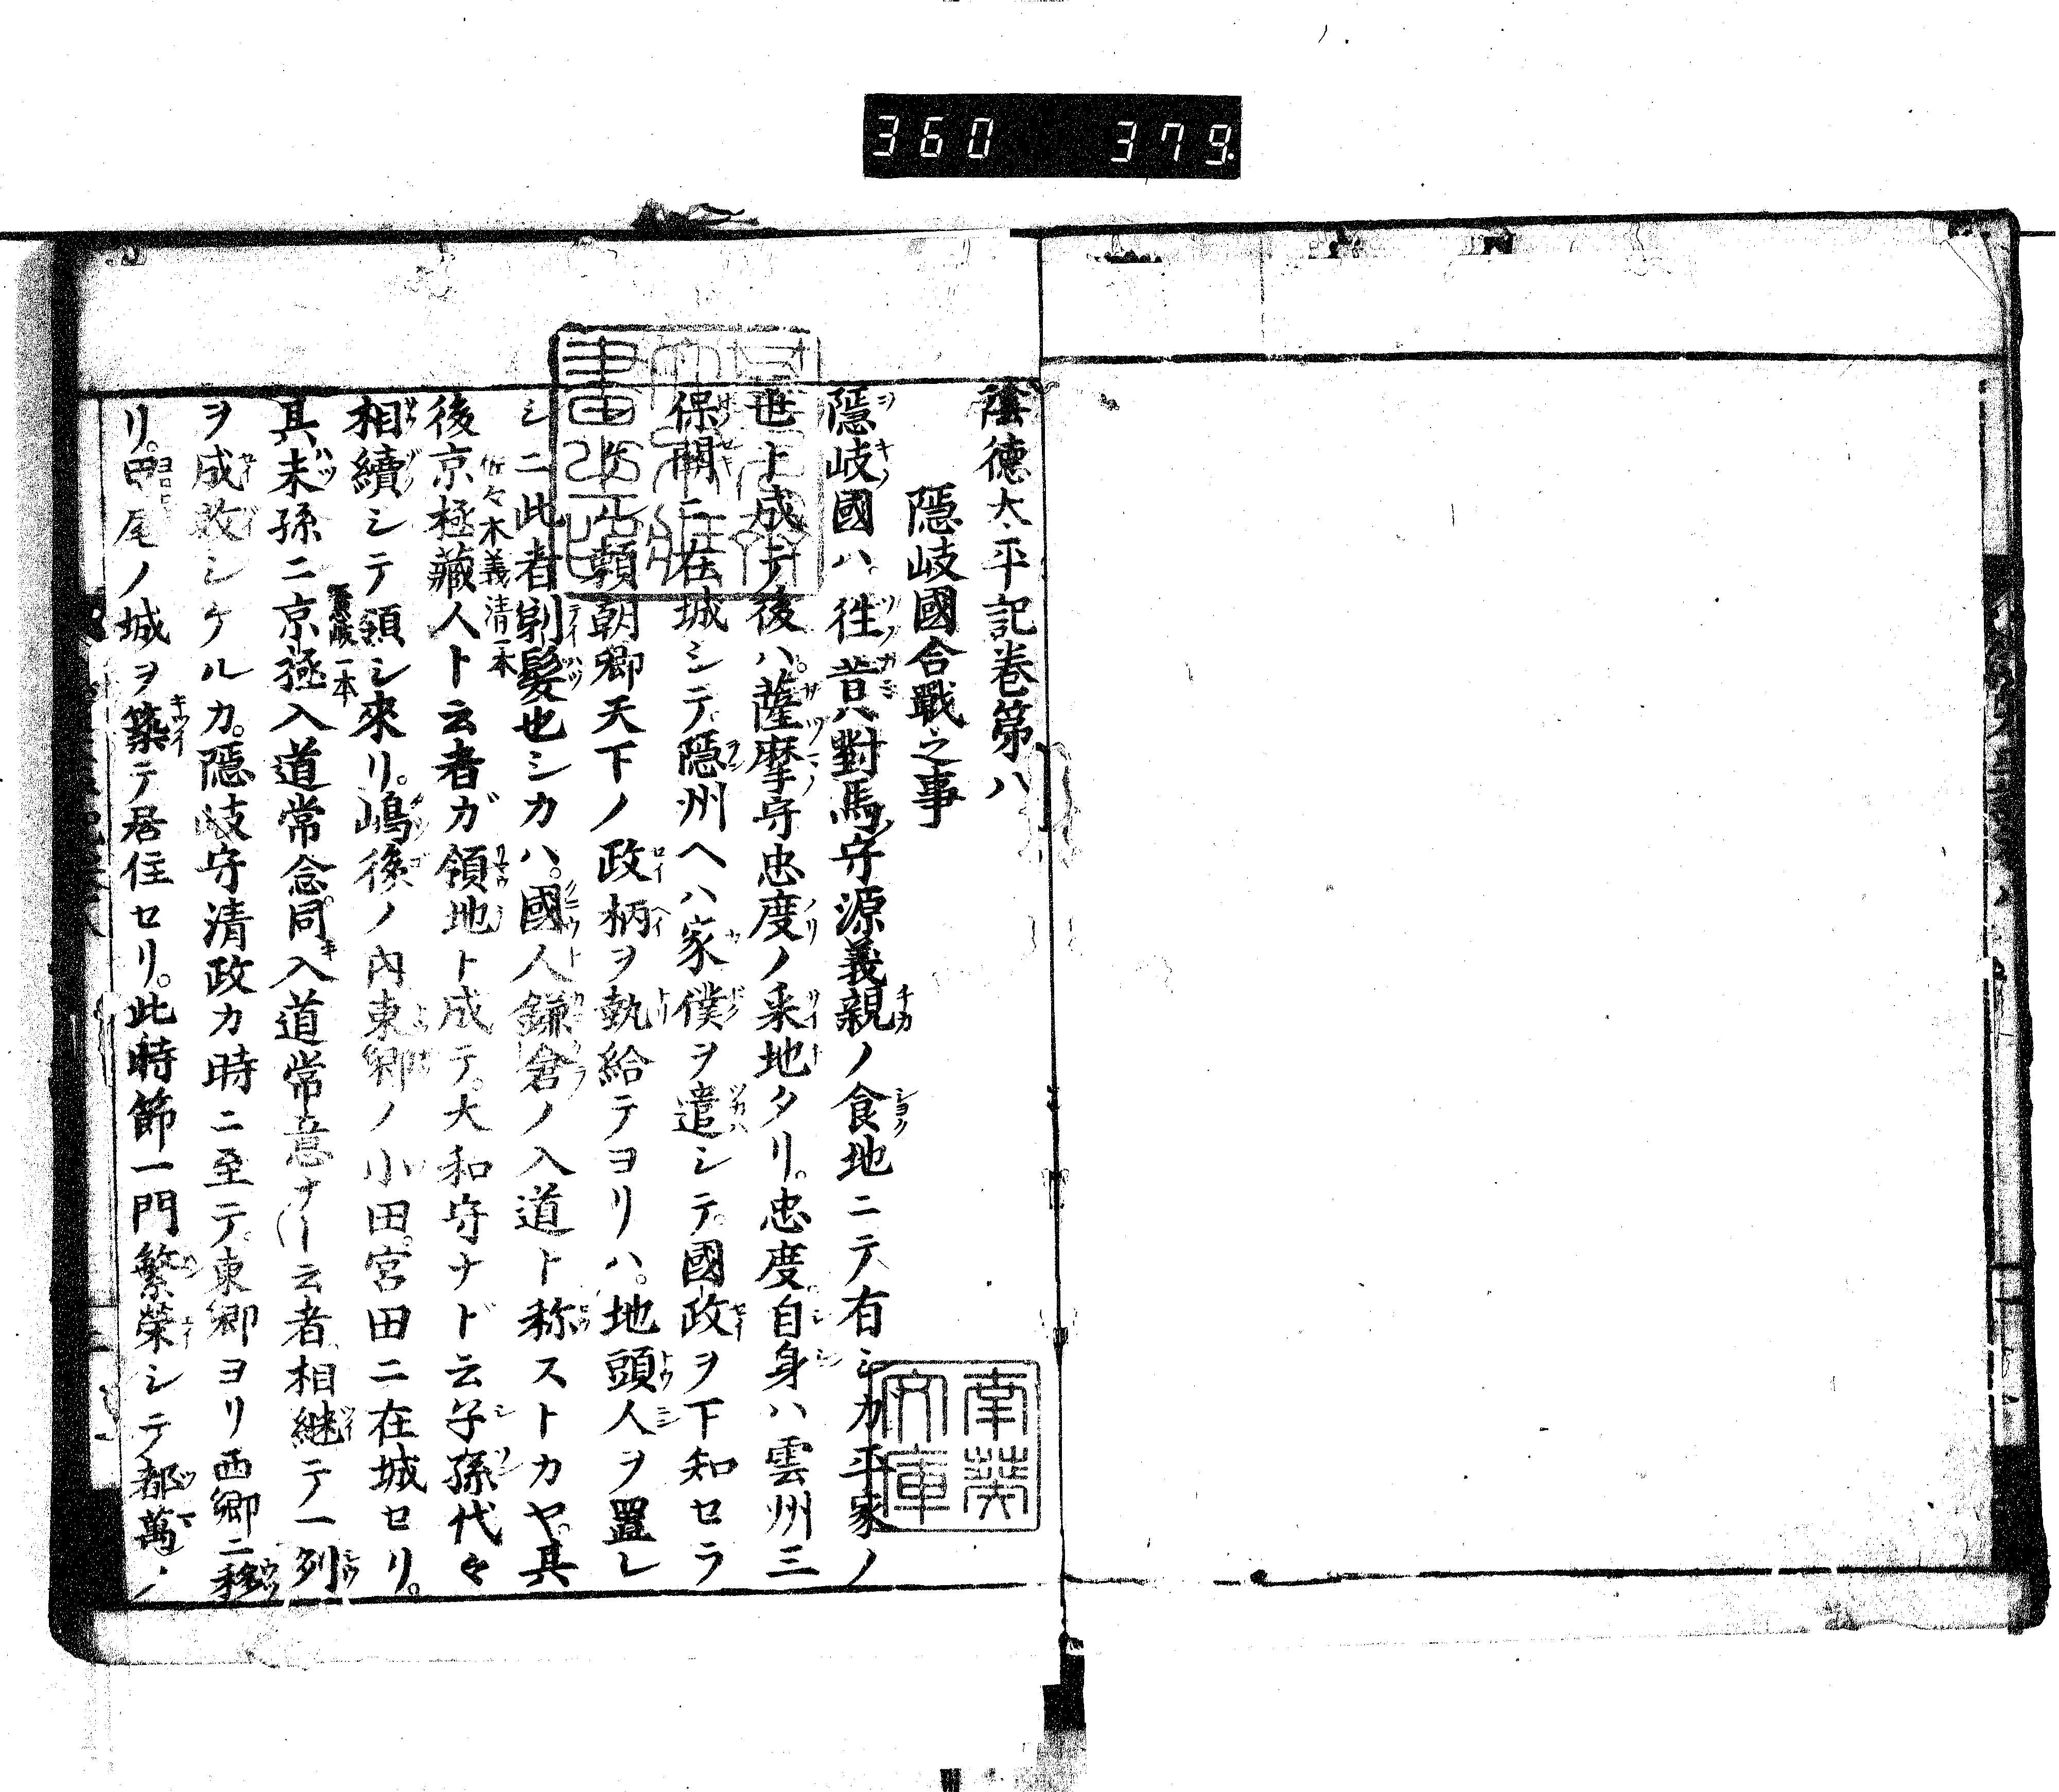 360 379
陰德太平記卷第八
隱岐國合戰之事
隱岐國ハ往昔對馬守源義親ノ食地ニテ有シカ平家ノ
世ト成テ後ハ薩摩守忠度ノ釆地タリ。忠度自身ハ雲州三
保關ニ在城シテ隱州ヘハ家僕ヲ遣シテ國政ヲ下知セラ
ル賴朝卿天下ノ政柄ヲ執給テヨリハ。地頭人ヲ置レ
シニ此者剃髮也シカハ。國人鎌倉ノ入道ト称ストカヤ。其
佐々木義清一本
後京極藏人ト云者ガ領地ト成テ。大和守ナド云子孫代々
相續シテ領シ來リ。嶋後ノ內東鄉ノ小田。宮田ニ在城セリ。
隱岐一本
其末孫ニ京極入道常念同入道常意ナド云者相継テ一列
ヲ成敗シケルカ。隱岐守清政カ時ニ至テ。東鄉ヨリ西鄉ニ移
リ。甲尾ノ城ヲ築テ居住セリ。此時節一門繁榮シテ都萬ノ
南葵
文庫